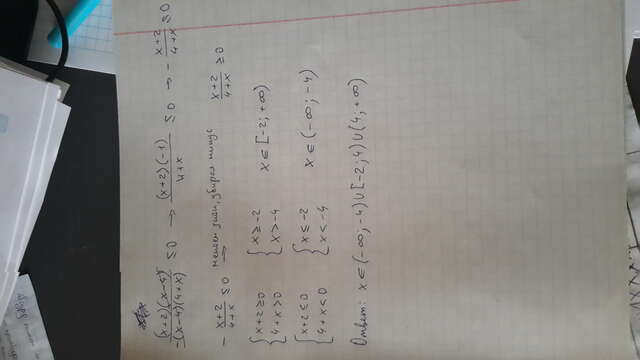 (x+2)(x-4)/-(x-4)(4+x) ≤0 → (x+2)(-1)/4+x ≤0 → - x+2/4+x ≤0
- x+2/4+x ≤0 меняем знак, убирая минус → x+2/4+x ≥0
{ x+2≥0 { x≥-2 x∈[-2;+∞)
4+x>0 x>-4
{ x+2≤0 { x≤-2 x∈(-∞;-4)
4+x<0 x<-4
Ответ: x∈(-∞;-4)∪[-2;4)∪(4;+∞)